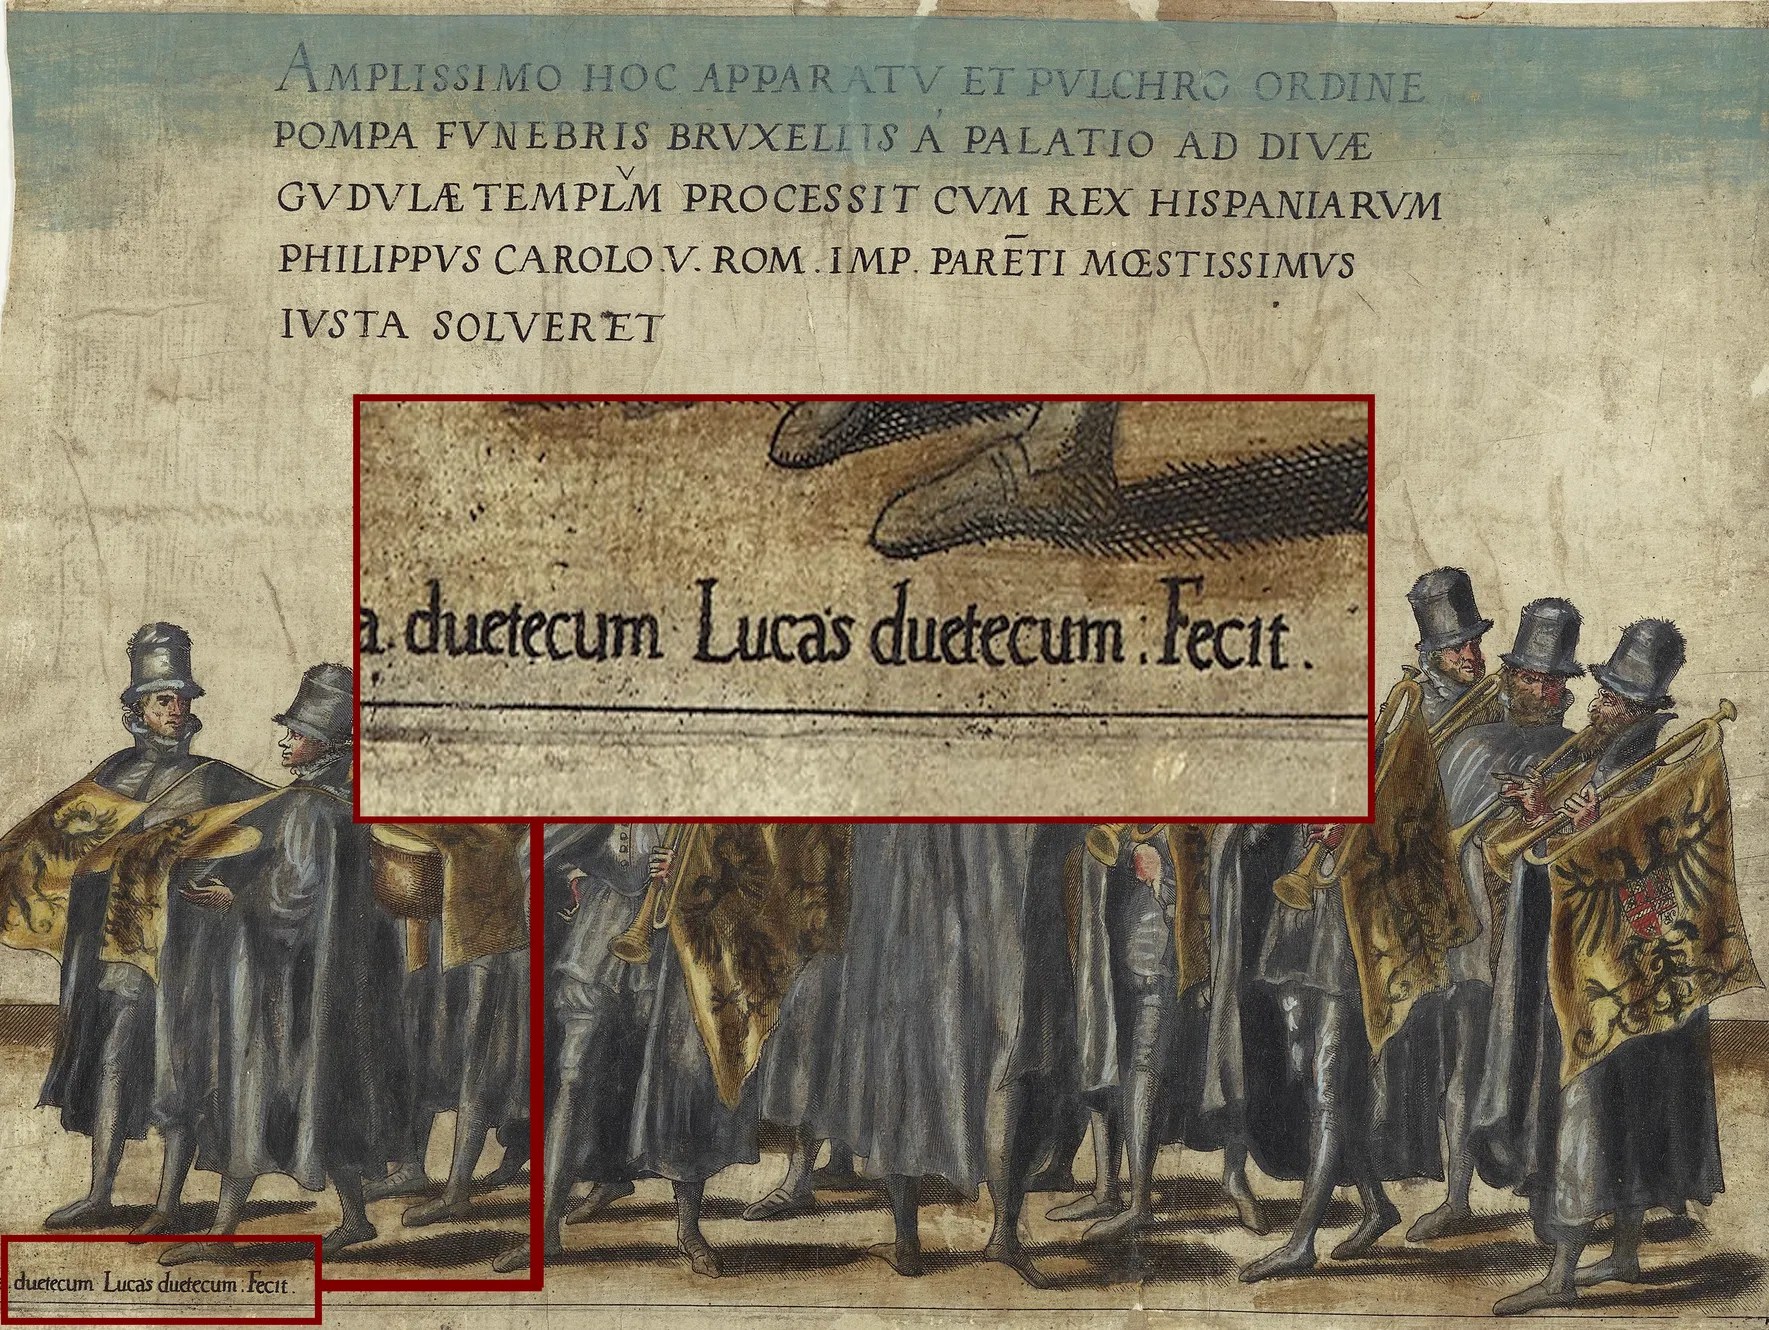 AMPLISSIMO HOC APPARATV ET PVLCHRO ORDINE
POMPA FVNEBRIS BRVXELLIS A̓ PALATIO AD DIVÆ
GVDVLÆ TEMPLV̌M PROCESSIT CVM REX HISPANIARVM
PHILIPPVS CAROLO.V. ROM. IMP. PARĒTI MŒSTISSIMVS
IVSTA SOLVERET
a. duetecum Lucas duetecum : Fecit.
duetecum Lucas duetecum : Fecit.